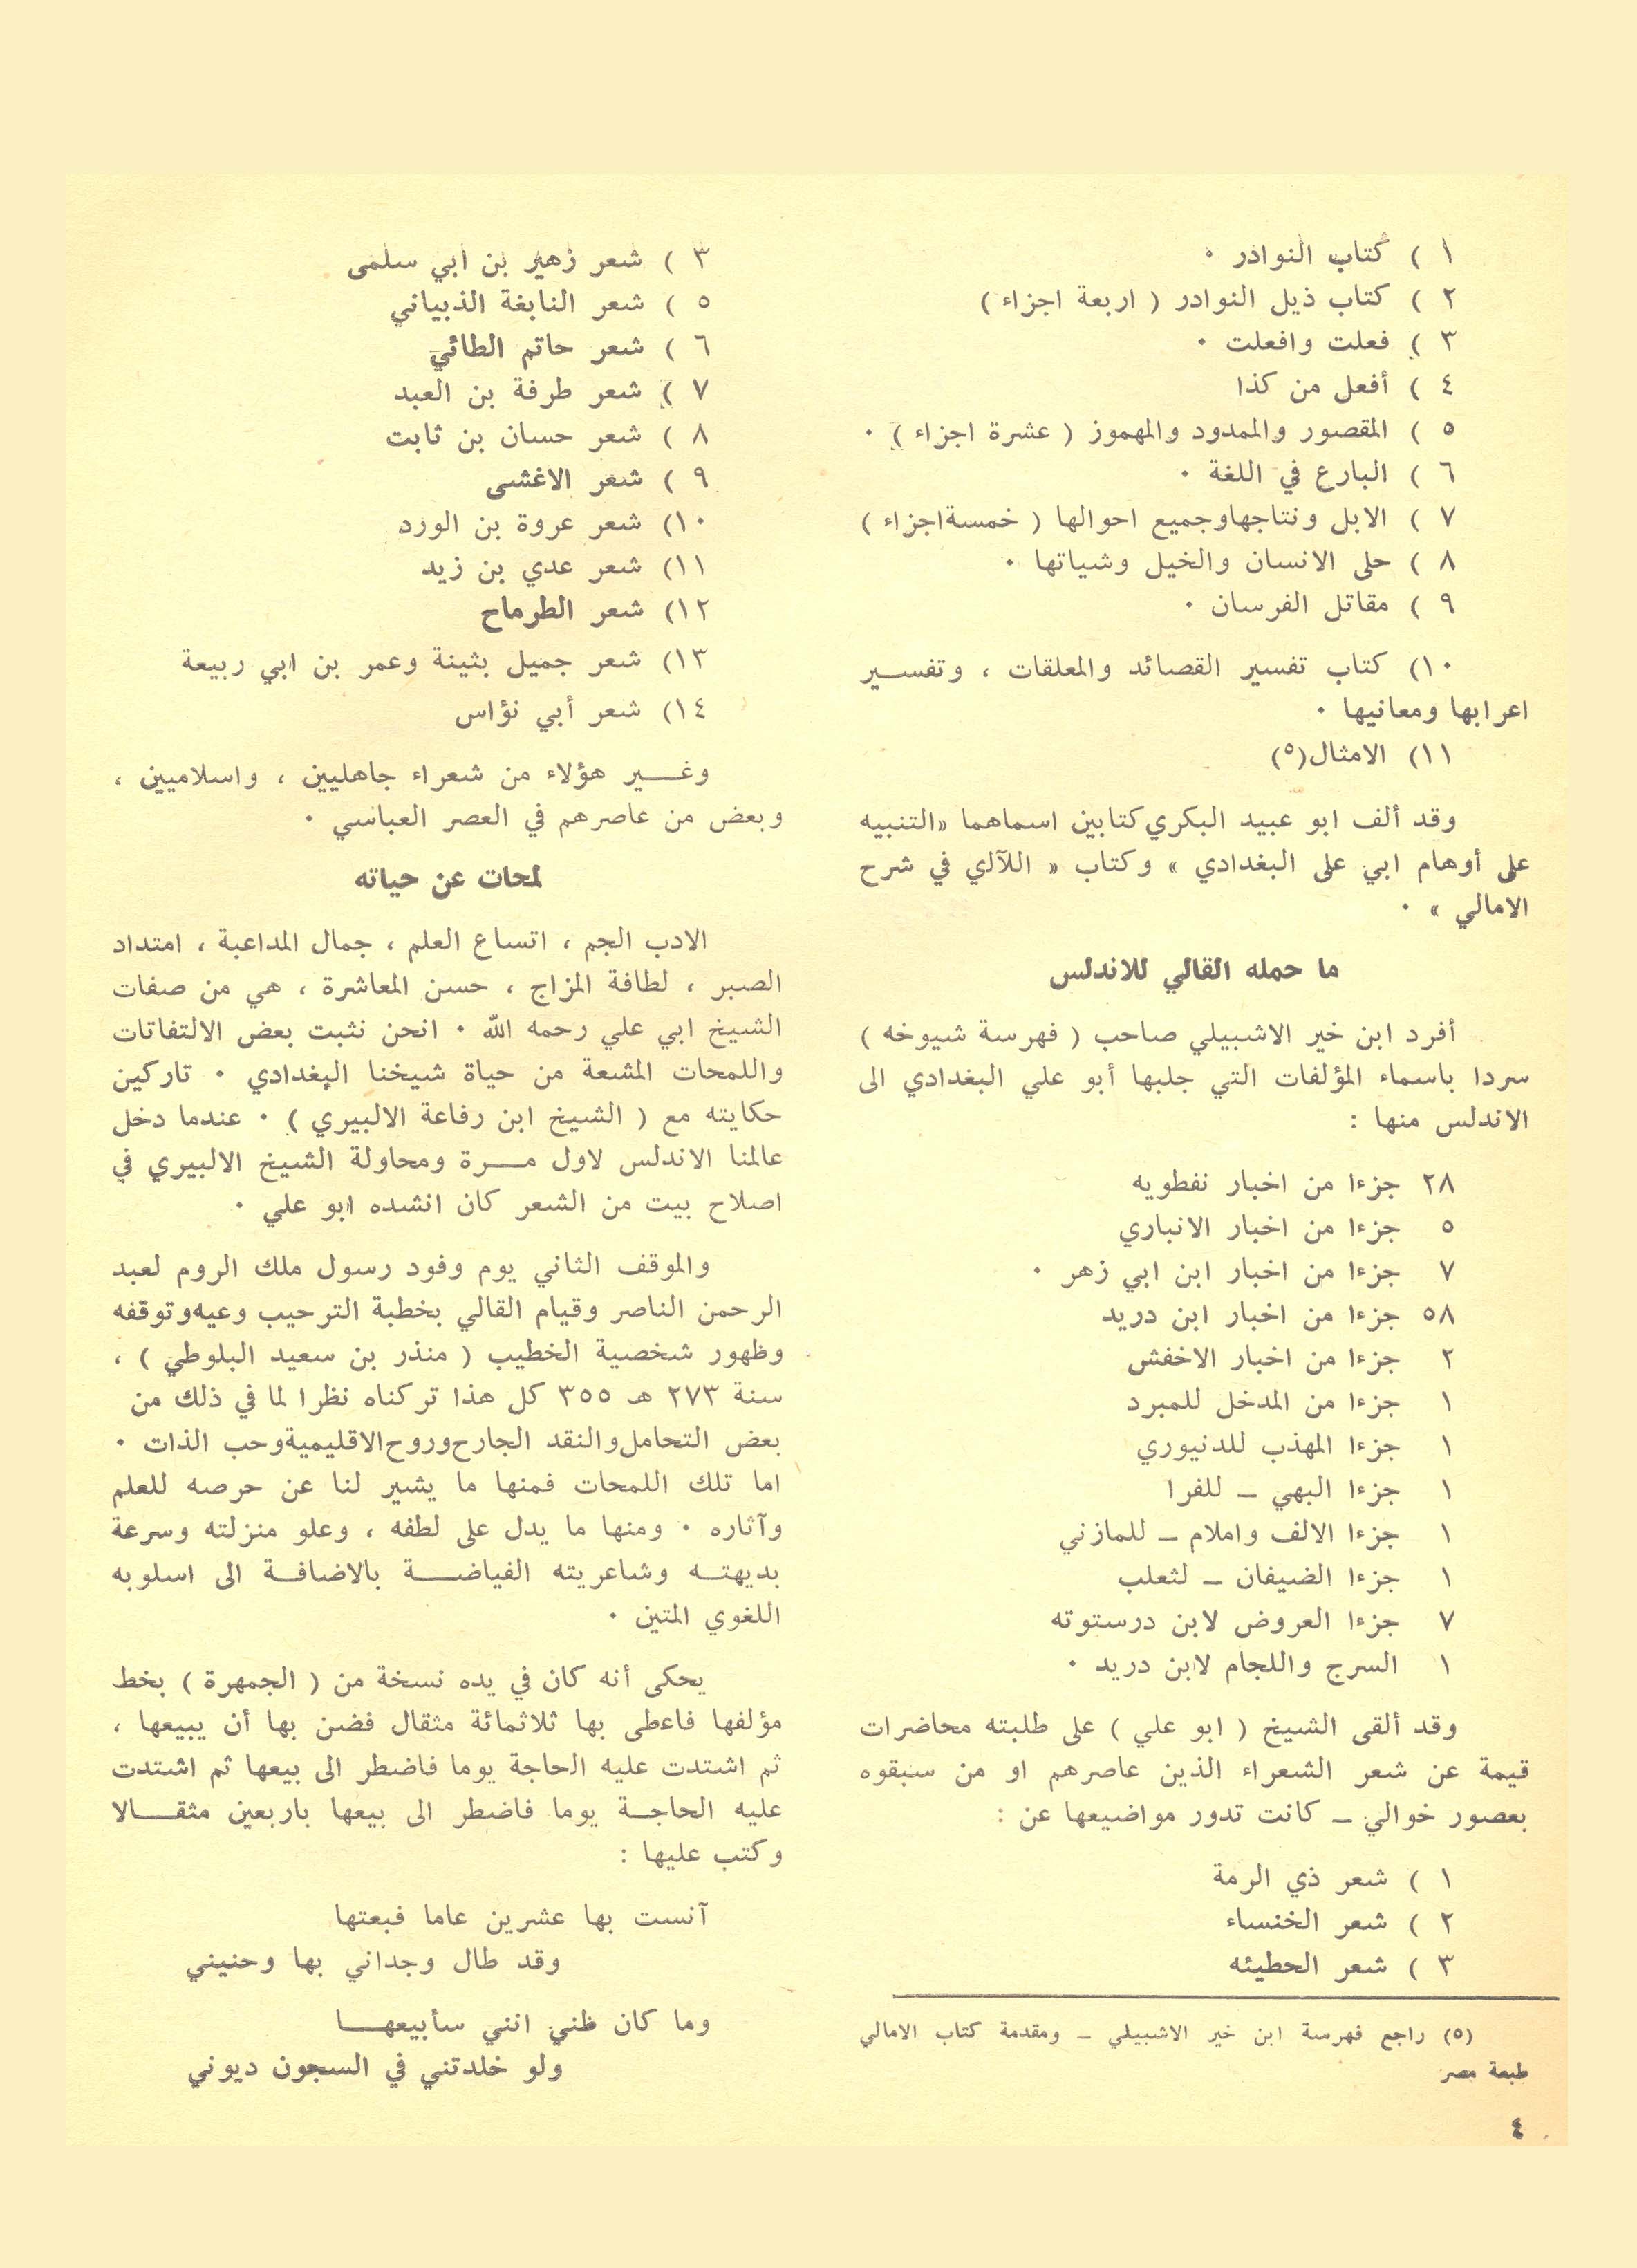 ١ ) كتاب النوادر ٠
٢ ) كتاب ذيل النوادر ( اربعة اجزاء )
٣ ) فعلت وافعلت ٠
٤ ) أفعل من كذا
٥ ) المقصور والممدود والمهموز ( عشرة اجزاء ) ٠
٦ ) البارع في اللغة ٠
٧ ) الابل ونتاجها وجميع احوالها ( خمسة اجزاء )
٨ ) حلى الانسان والخيل وشياتها ٠
٩ ) مقاتل الفرسان ٠
١٠) كتاب تفسير القصائد والمعلقات ، وتفسير
اعرابها ومعانيها ٠
١١) الامثال(٥)
وقد ألف ابو عبيد البكري كتابين اسماهما «التنبيه
على أوهام ابي على البغدادي » وكتاب « اللآلي في شرح
الامالي » ٠
ما حمله القالي للاندلس
أفرد ابن خير الاشبيلي صاحب ( فهرسة شيوخه )
سردا باسماء المؤلفات التي جلبها أبو علي البغدادي الى
الاندلس منها :
٢٨ جزءا من اخبار نفطويه
٥ جزءا من اخبار الانباري
٧ جزءا من اخبار ابن ابي زهر ٠
٥٨ جزءا من اخبار ابن دريد
٢ جزءا من اخبار الاخفش
١ جزءا من المدخل للمبرد
١ جزءا المهذب للدنيوري
١ جزءا البهي ـ للفرا
١ جزءا الالف واملام ـ للمازني
١ جزءا الضيفان ـ لثعلب
٧ جزءا العروض لابن درستوته
١ السرج واللجام لابن دريد ٠
وقد ألقى الشيخ ( ابو علي ) على طلبته محاضرات
قيمة عن شعر الشعراء الذين عاصرهم او من سبقوه
بعصور خوالي ـ كانت تدور مواضيعها عن :
١ ) شعر ذي الرمة
٢ ) شعر الخنساء
٣ ) شعر الحطيئه
(٥) راجع فهرسة ابن خير الاشبيلي ـ ومقدمة كتاب الامالي
طبعة مصر
٤
٣ ) شعر زهير بن ابي سلمى
٥ ) شعر النابغة الذبياني
٦ ) شعر حاتم الطائي
٧ ) شعر طرفة بن العبد
٨ ) شعر حسان بن ثابت
٩ ) شعر الاغشى
١٠) شعر عروة بن الورد
١١) شعر عدي بن زيد
١٢) شعر الطرماح
١٣) شعر جميل بثينة وعمر بن ابي ربيعة
١٤) شعر أبي نؤاس
وغير هؤلاء من شعراء جاهليين ، واسلاميين ،
وبعض من عاصرهم في العصر العباسي ٠
لمحات عن حياته
الادب الجم ، اتساع العلم ، جمال المداعبة ، امتداد
الصبر ، لطافة المزاج ، حسن المعاشرة ، هي من صفات
الشيخ ابي علي رحمه الله ٠ انحن نثبت بعض الالتفاتات
واللمحات المشعة من حياة شيخنا البغدادي ٠ تاركين
حكايته مع ( الشيخ ابن رفاعة الالبيري ) ٠ عندما دخل
عالمنا الاندلس لاول مرة ومحاولة الشيخ الالبيري في
اصلاح بيت من الشعر كان انشده ابو علي ٠
والموقف الثاني يوم وفود رسول ملك الروم لعبد
الرحمن الناصر وقيام القالي بخطبة الترحيب وعيه وتوقفه
وظهور شخصية الخطيب ( منذر بن سعيد البلوطي ) ،
سنة ٢٧٣ هـ ٣٥٥ كل هذا تركناه نظرا لما في ذلك من
بعض التحامل والنقد الجارح وروح الاقليمية وحب الذات ٠
اما تلك اللمحات فمنها ما يشير لنا عن حرصه للعلم
وآثاره ٠ ومنها ما يدل على لطفه ، وعلو منزلته وسرعة
بديهته وشاعريته الفياضة بالاضافة الى اسلوبه
اللغوي المتين ٠
يحكى أنه كان في يده نسخة من ( الجمهرة ) بخط
مؤلفها فاعطى بها ثلاثمائة مثقال فضن بها أن يبيعها ،
ثم اشتدت عليه الحاجة يوما فاضطر الى بيعها ثم اشتدت
عليه الحاجة يوما فاضطر الى بيعها باربعين مثقالا
وكتب عليها :
آنست بها عشرين عاما فبعتها
وقد طال وجداني بها وحنيني
وما كان ظني انني سأبيعها
ولو خلدتني في السجون ديوني